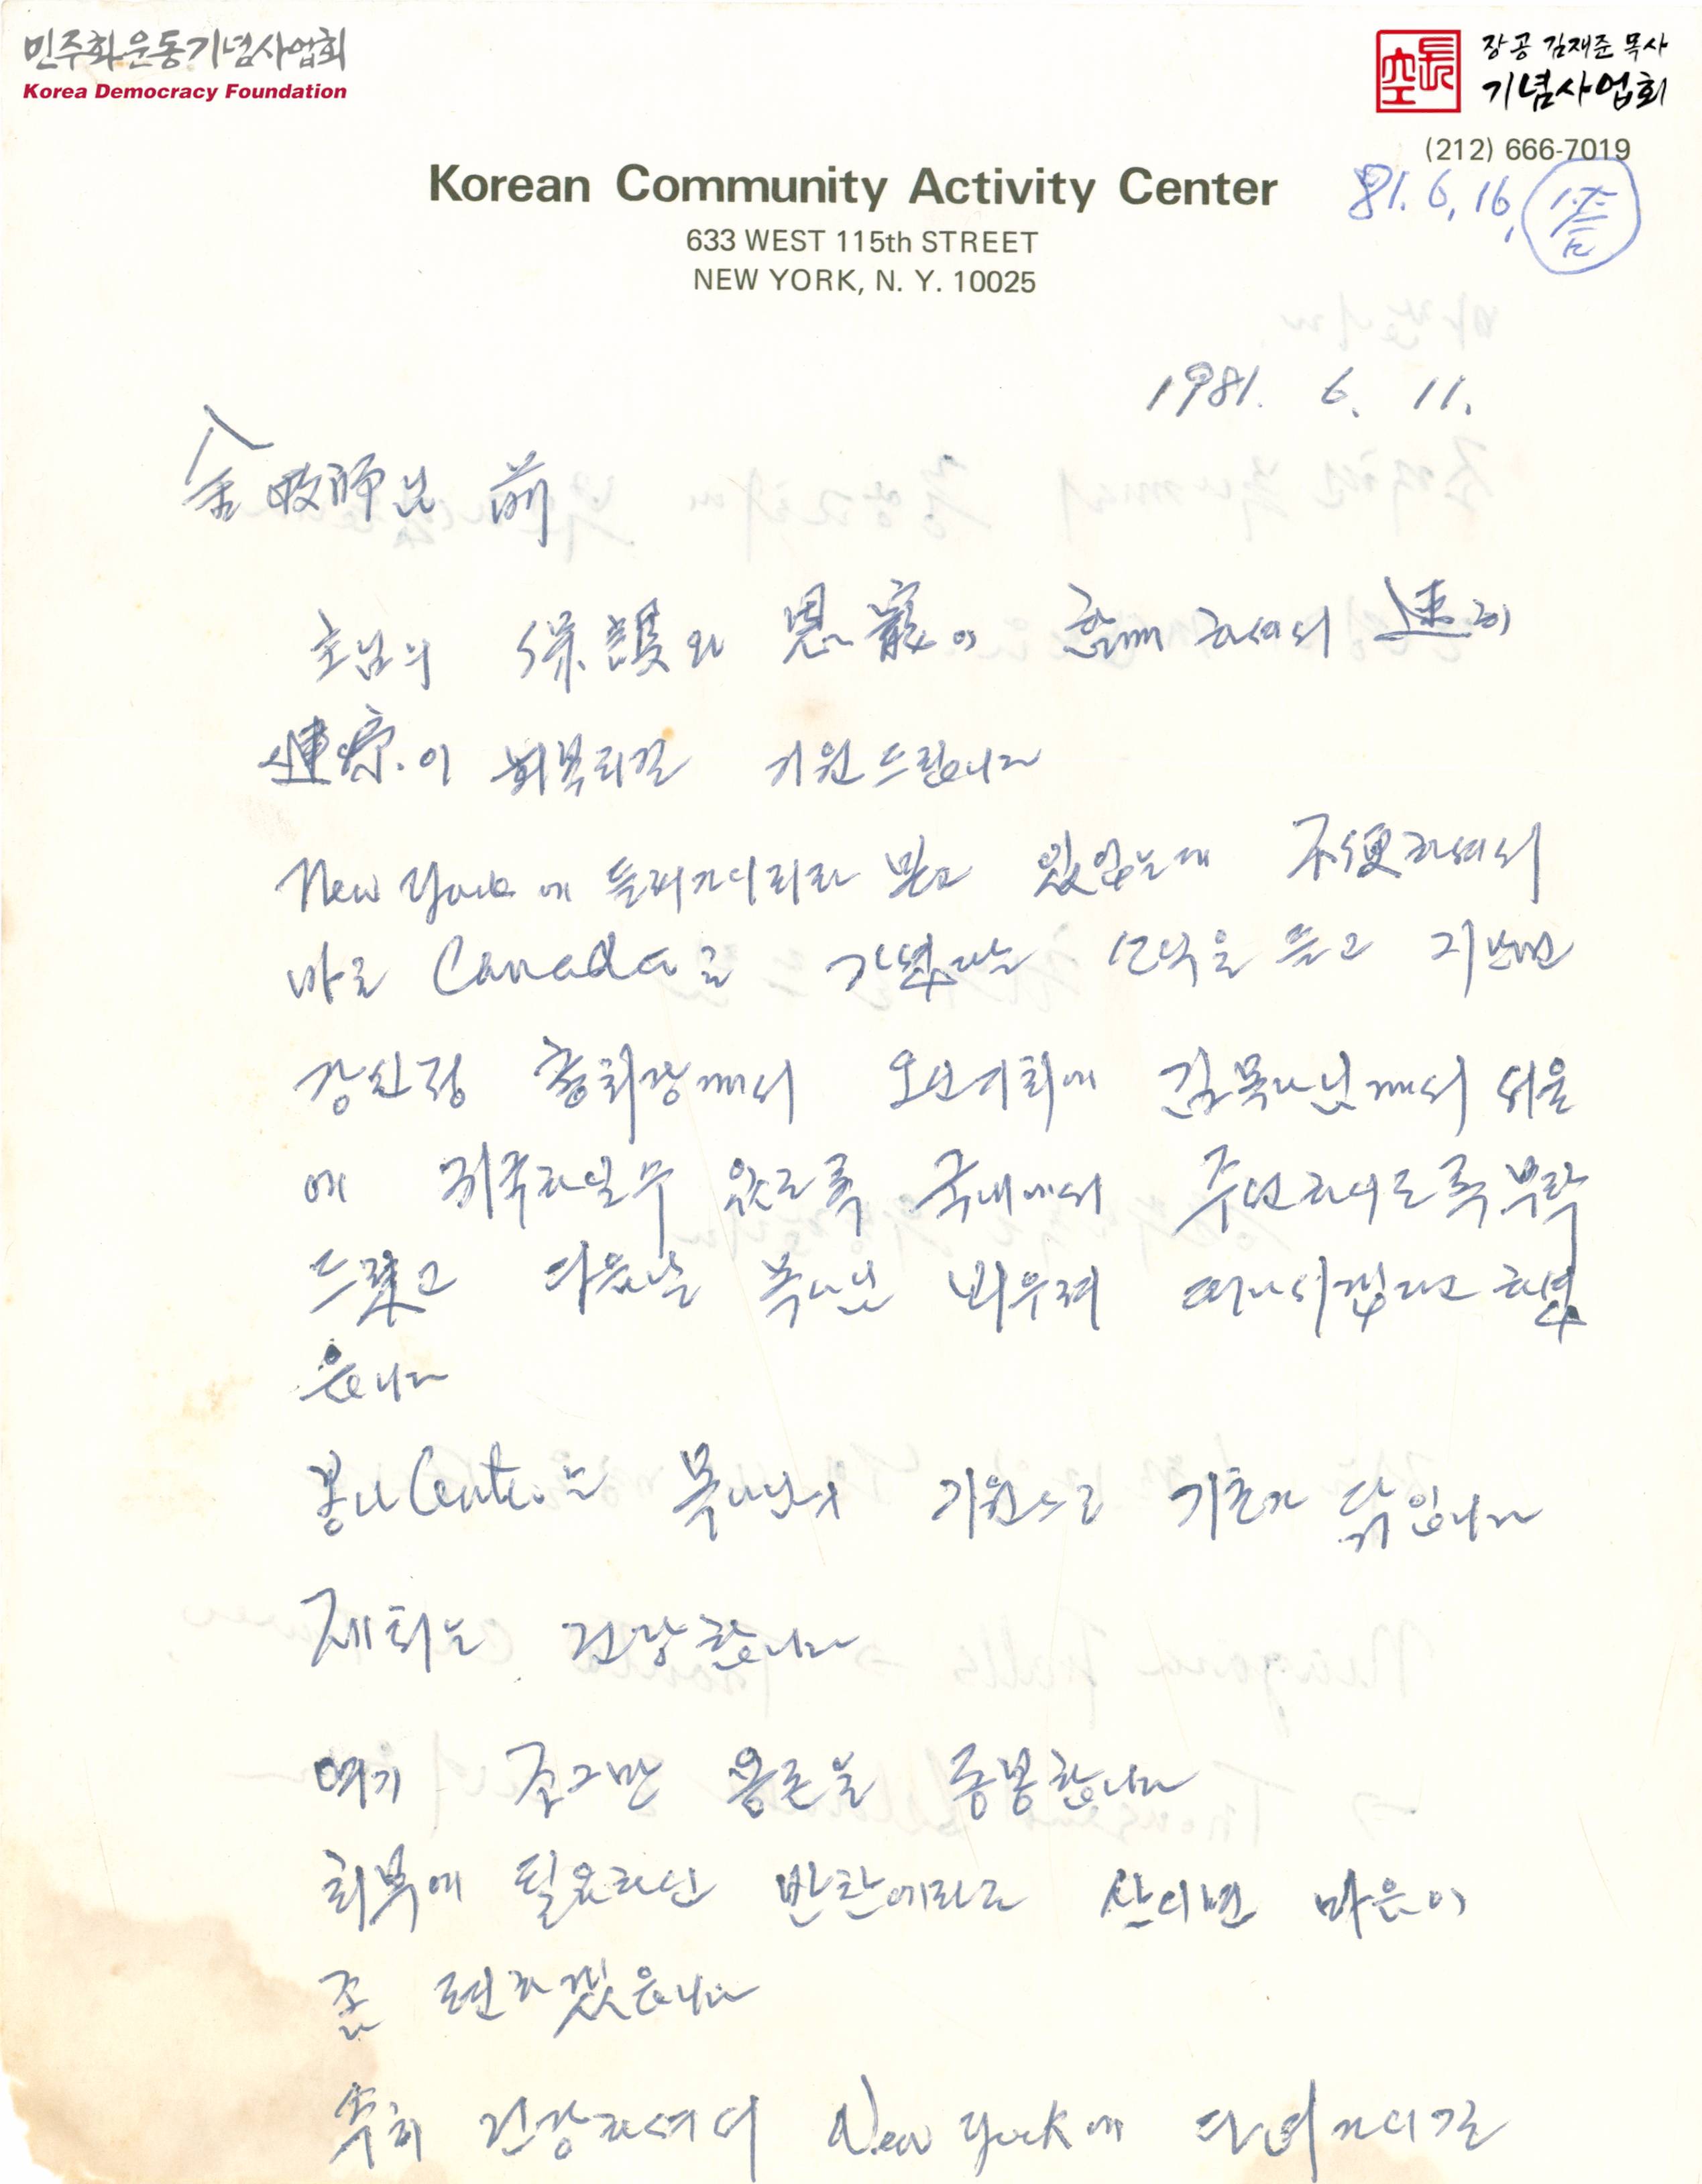 민주화운동기념사업회
Korea Democracy Foundation
長空
장공 김재준 목사
기념사업회
(212) 666-7019
Korean Community Activity Center
81. 6, 16, 答
633 WEST 115th STREET
NEW YORK, N. Y. 10025
1981. 6. 11.
金牧師님 前
主님의 保護와 恩寵이 함께 하셔서 速히
健康이 회복되길 기원드립니다
New York에 들려가시리라 믿고 있었는데 不便하셔서
바로 Canada로 가셨다는 소식을 듣고 지난번
강신정 총회장께서 오신 기회에 김목사님께서 서울
에 귀국하실 수 있도록 국내에서 주선하시도록 부탁
드렸고 다음날 목사님 뵈우려 떠나시겠다고 하셨
읍니다
봉사Center는 목사님의 기원으로 기초가 닦입니다
저희는 건강합니다
여기 조그만 용돈을 동봉합니다
회복에 필요하신 반찬에라도 쓰시면 마음이
좀 편하겠읍니다
속히 건강하셔서 New York에 다녀가시길